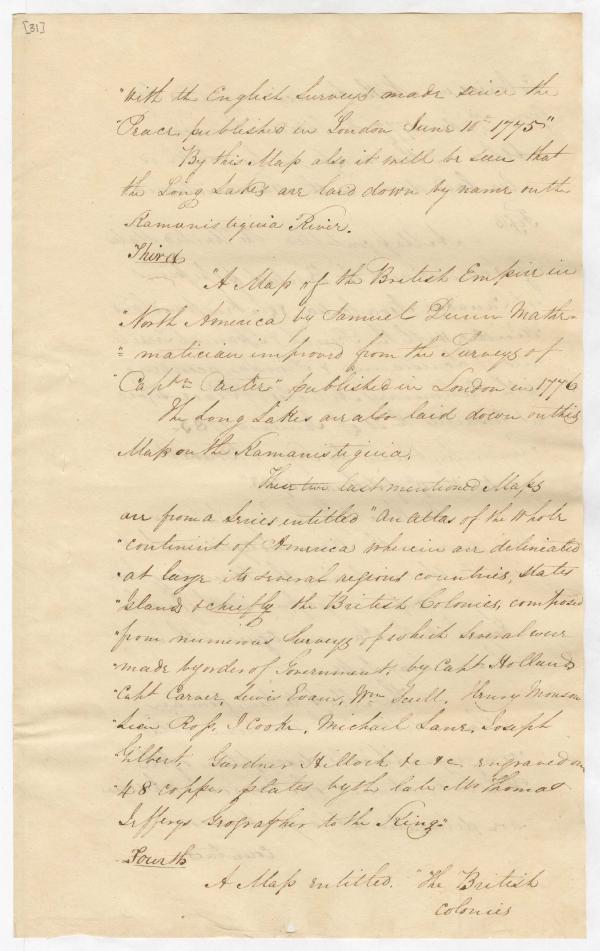 [31]
"With th English Surveys made since the
"Peace, published in London June 10th 1775"
By this Map also it will be seen that
the Long Lakes are laid down by name on the
Kamanistiquia River.
Third
"A Map of the British Empire in
"North America by Samuel Dunn Mathe-
"-matician improved from the Surveys of
"Captn Carter" published in London in 1776
The Long Lakes are also laid down on this
Map on the Kamanistiquia.
These two last mentioned Maps
are from a Series entitled "An atlas of the Whole
"continent of America wherein are delineated
"at large its several regions countries, states
"Islands & chiefly the British Colonies, composed
"from numerous Surveys of which several were
"made by order of Government, by Capt Holland
"Capt Carver, Lewis Evans, Wm Scull, Henry Monson
"Lieu Ross, J Cooke, Michael Lane, Joseph
"Gilbert, Gardner Hillock &c &c engraved on
"48 copper plates by th late Mr Thomas
Jefferys Geographer to the King"
Fourth
A Map entitled. "The British
Colonies